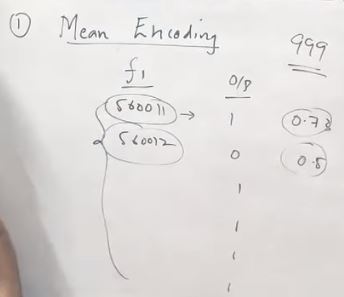 ① Mean Encoding
999
f1 O/P
560011 → 1 0.73
560012 0 0.5
1
1
1
1